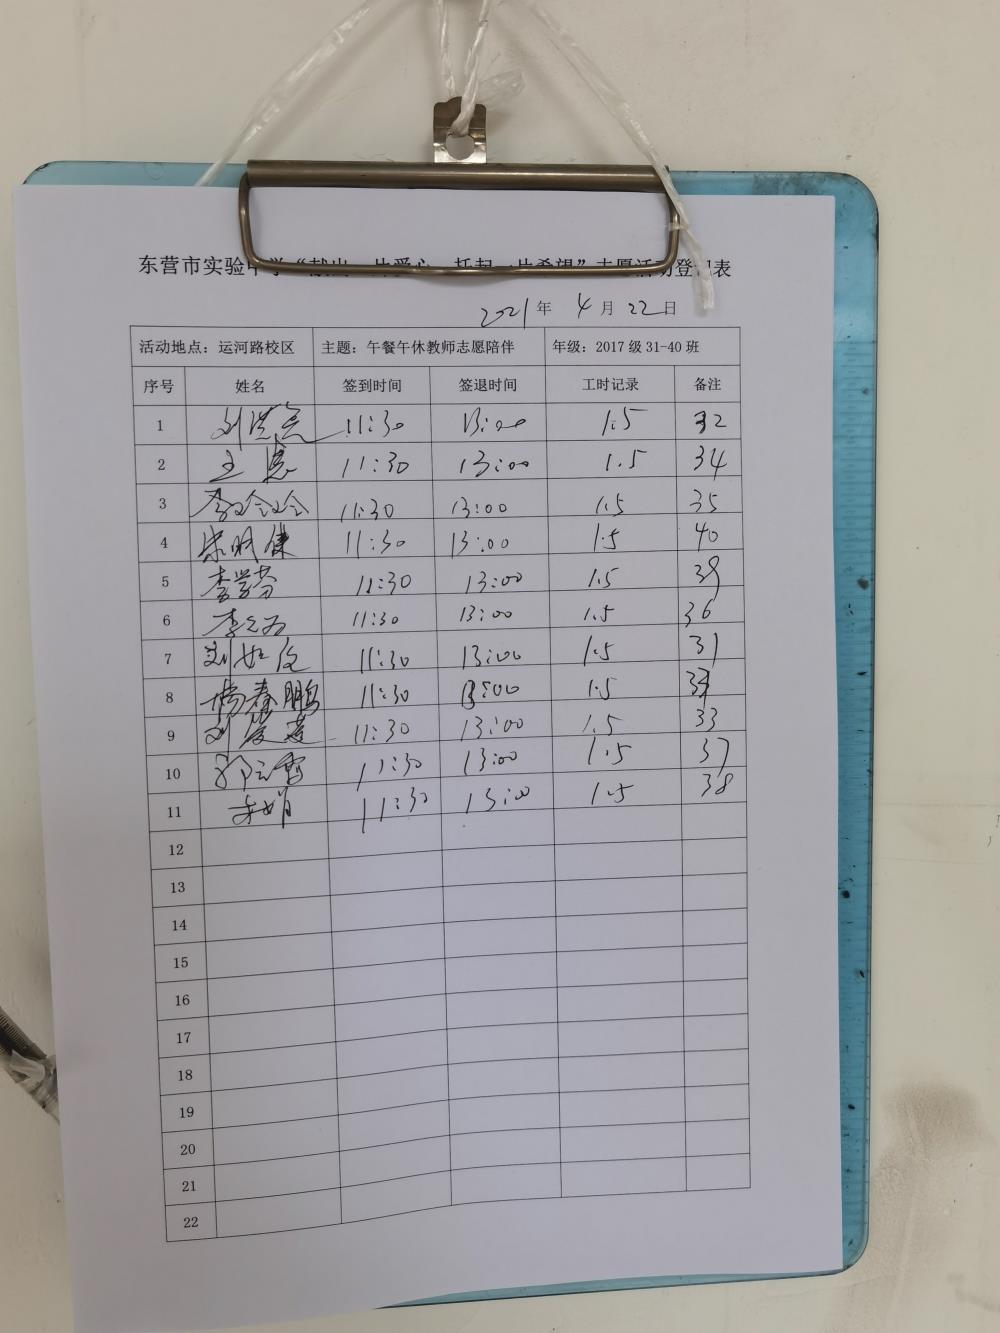 东营市实验中学“献出一片爱心 托起一片希望”志愿活动登记表
2021年 4月22日
活动地点：运河路校区 主题：午餐午休教师志愿陪伴 年级：2017级31-40班
序号 姓名 签到时间 签退时间 工时记录 备注
1 11:30 13:00 1.5 32
2 王惠 11:30 13:00 1.5 34
3 李玲玲 11:30 13:00 1.5 35
4 宋明健 11:30 13:00 1.5 40
5 李学芬 11:30 13:00 1.5 39
6 11:30 13:00 1.5 36
7 刘如俊 11:30 13:00 1.5 31
8 杨春鹏 11:30 13:00 1.5
9 11:30 13:00 1.5 33
10 11:30 13:00 1.5 37
11 朱娟 11:30 13:00 1.5 38
12
13
14
15
16
17
18
19
20
21
22